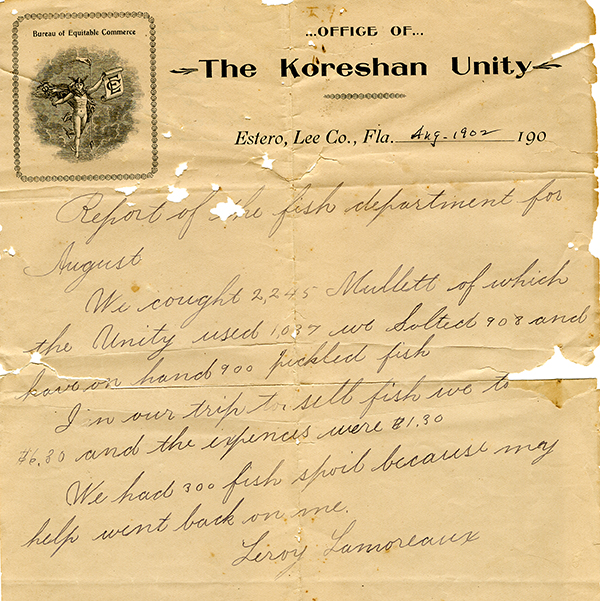 Bureau of Equitable Commerce
...OFFICE OF...
The Koreshan Unity
Estero, Lee Co., Fla. Aug - 1902 190
Report of the fish department for
August
We cought 2,245 Mullett of which
the Unity used 1,037 we Salted 908 and
have on hand 900 pickled fish
In our trip to sell fish we to
$6.30 and the expences were $1.30
We had 300 fish spoil because my
help went back on me.
Leroy Lamoreaux